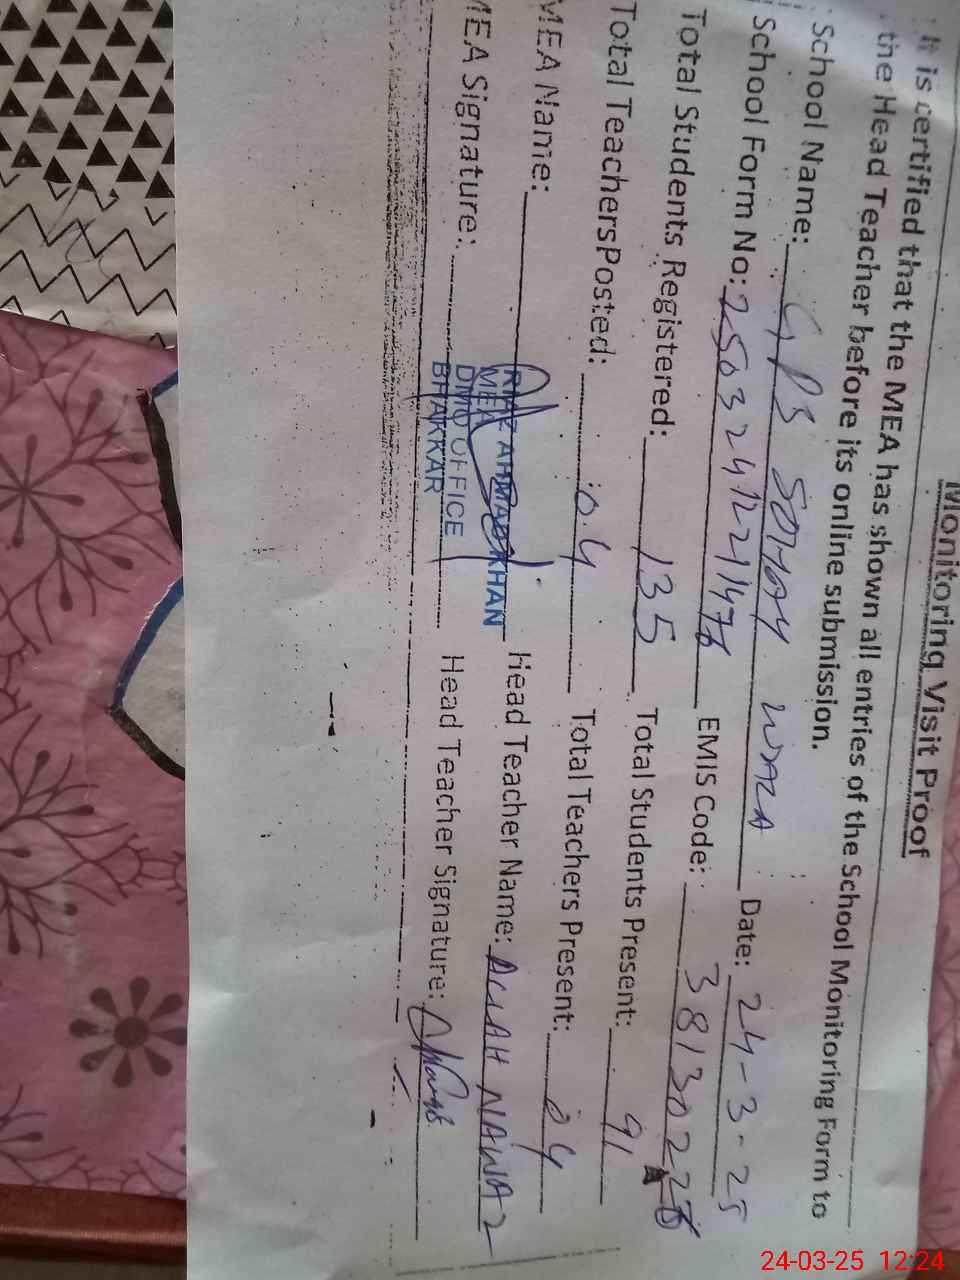 Monitoring Visit Proof
It is certified that the MEA has shown all entries of the School Monitoring Form to
the Head Teacher before its online submission.
School Name: GPS SOHAY WALA Date: 24-3-25
School Form No: EMIS Code:
Total Students Registered: 135 Total Students Present: 91
Total Teachers Posted: 04 Total Teachers Present: 04
MEA Name: RIAZ AHMAD KHAN Head Teacher Name: ALLAH NAWAZ
MEA
MEA Signature: DMO OFFICE Head Teacher Signature:
BHAKKAR
24-03-25 12:24